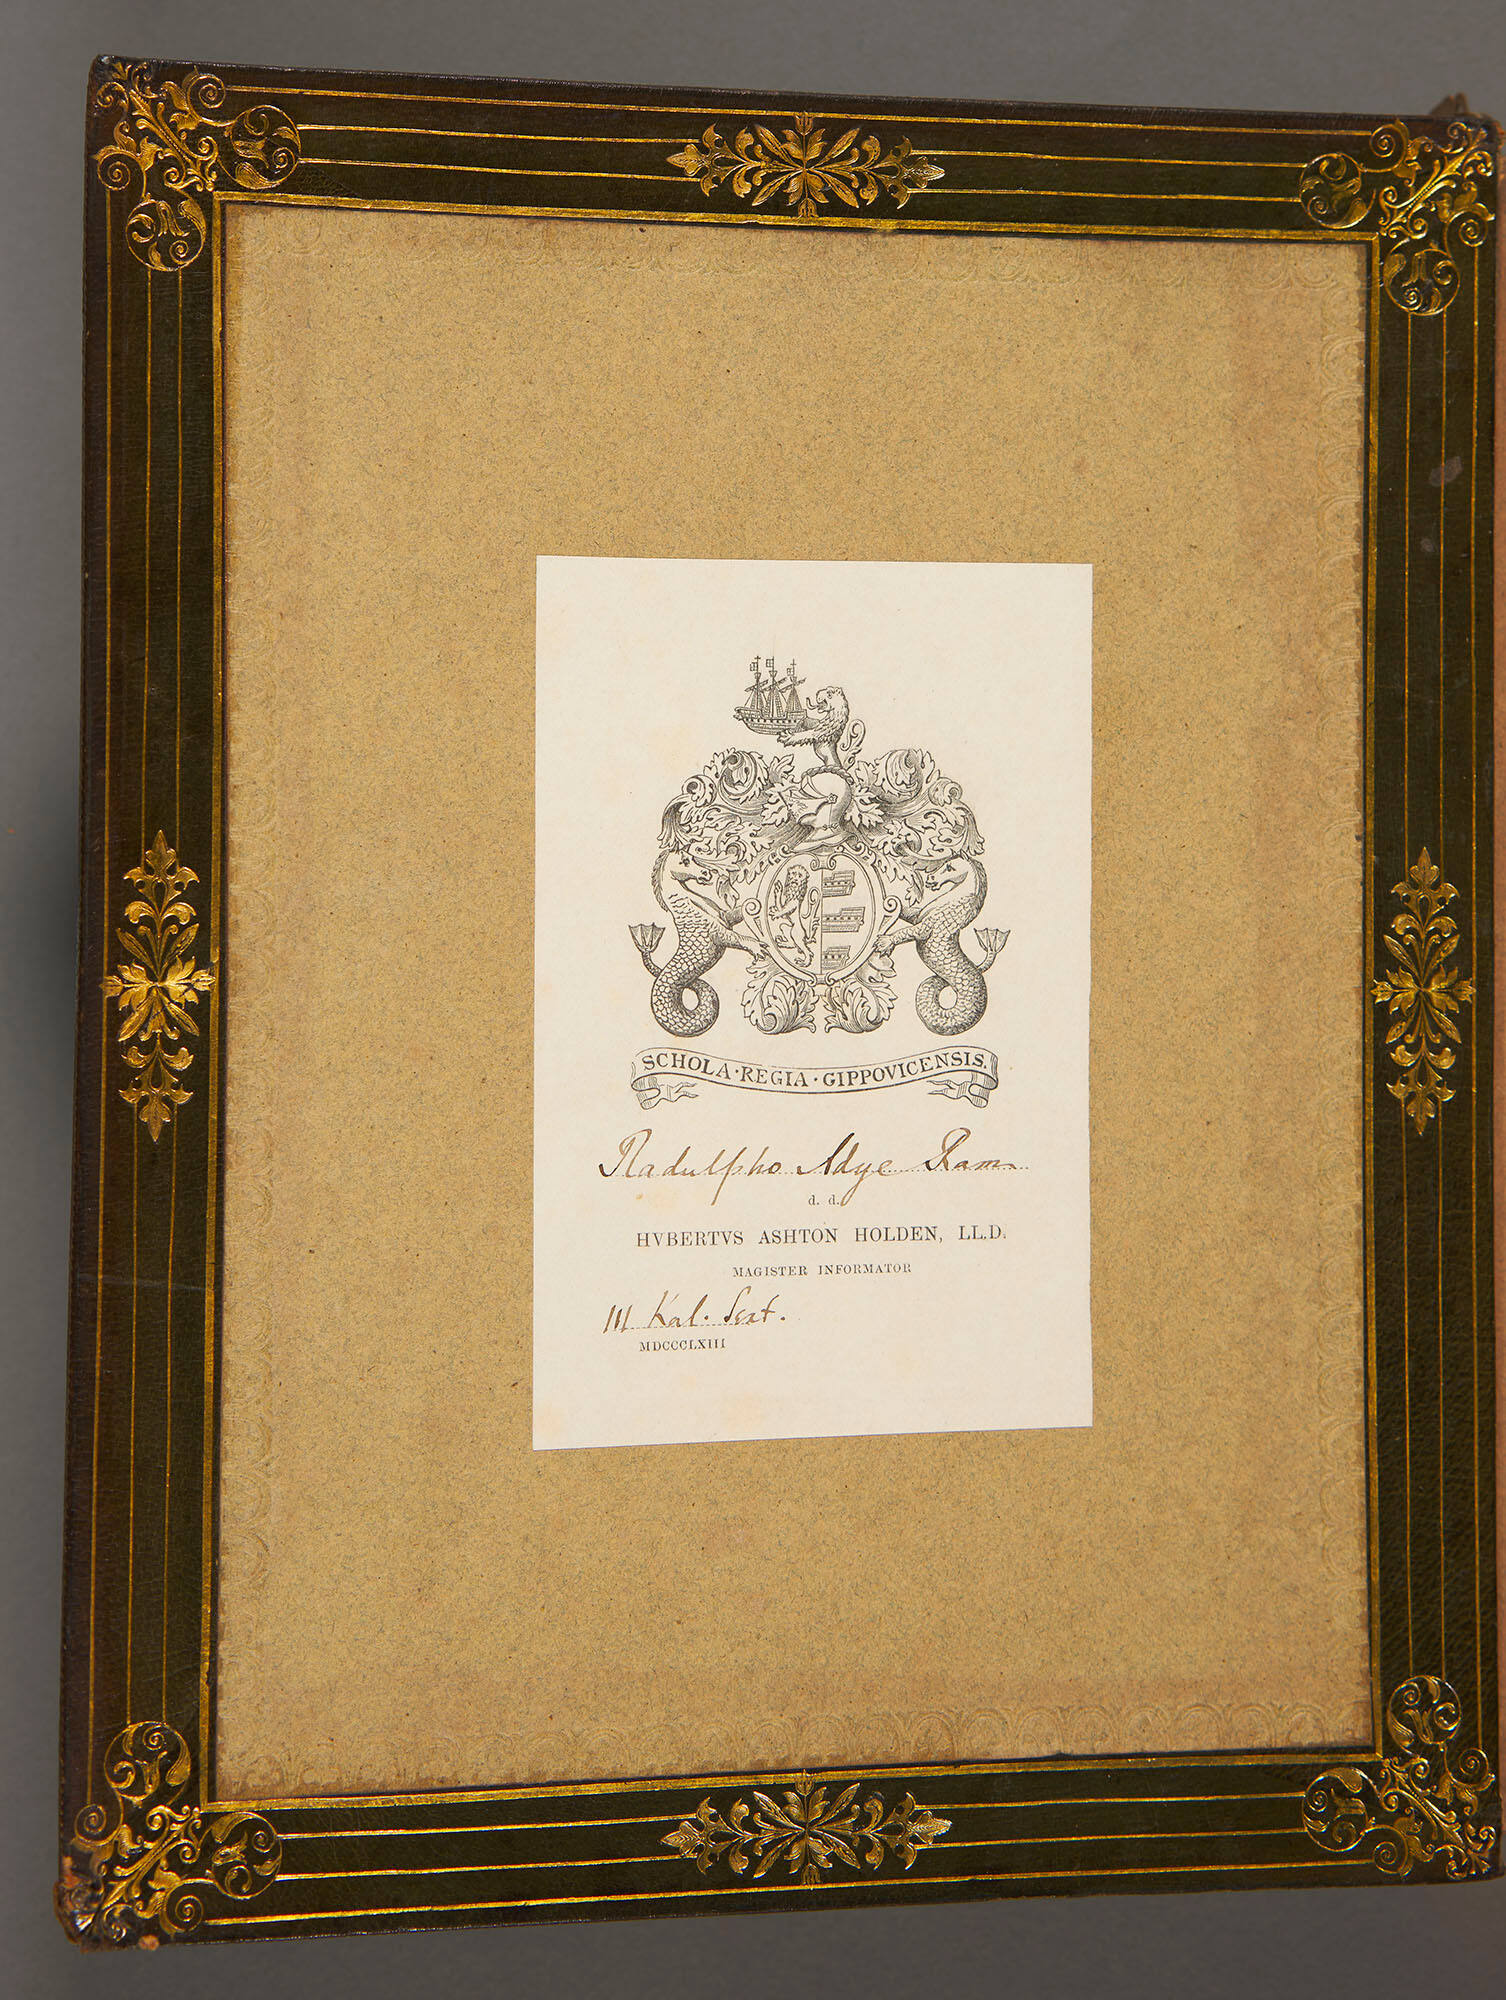 SCHOLA·REGIA·GIPPOVICENSIS.
Radulpho Adye Ram
d. d.
HVBERTVS ASHTON HOLDEN, LL.D.
MAGISTER INFORMATOR
III Kal. Sext.
MDCCCLXIII